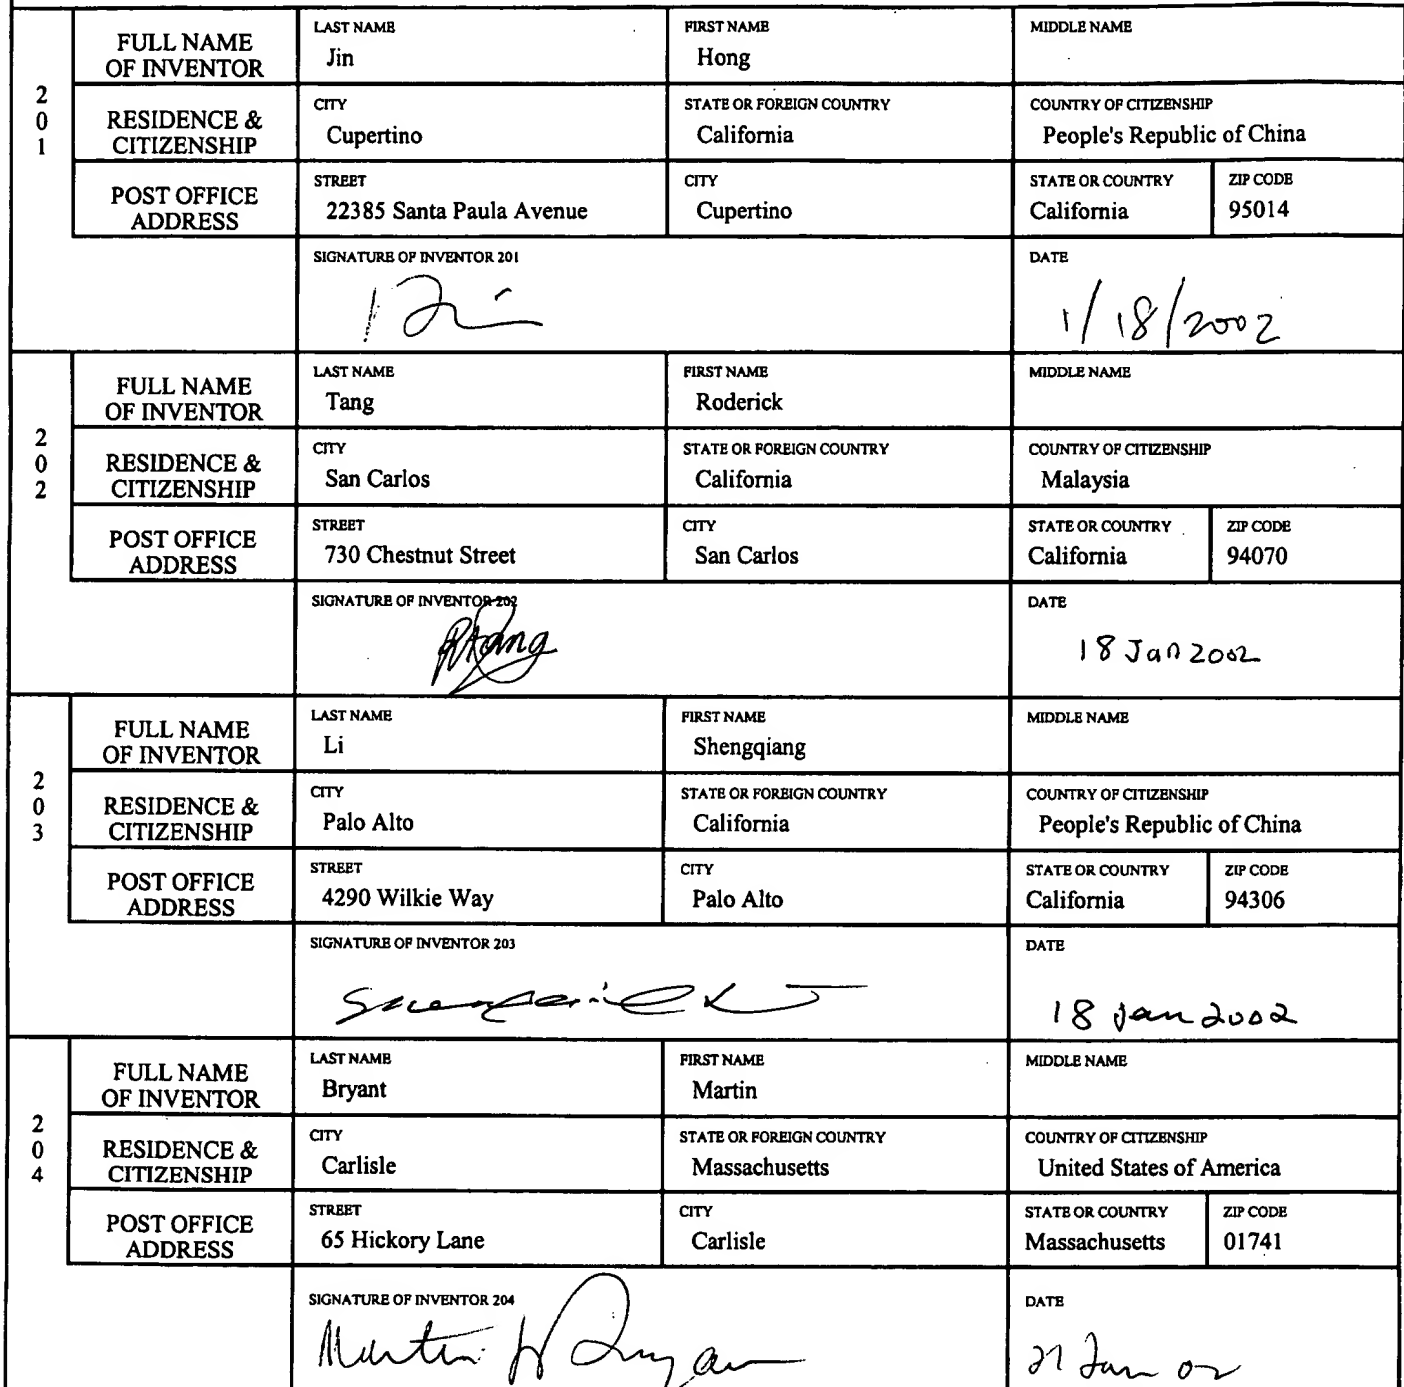 2 0 1
FULL NAME OF INVENTOR
LAST NAME
Jin
FIRST NAME
Hong
MIDDLE NAME
RESIDENCE & CITIZENSHIP
CITY
Cupertino
STATE OR FOREIGN COUNTRY
California
COUNTRY OF CITIZENSHIP
People's Republic of China
POST OFFICE ADDRESS
STREET
22385 Santa Paula Avenue
CITY
Cupertino
STATE OR COUNTRY
California
ZIP CODE
95014
SIGNATURE OF INVENTOR 201
DATE
1/18/2002
2 0 2
FULL NAME OF INVENTOR
LAST NAME
Tang
FIRST NAME
Roderick
MIDDLE NAME
RESIDENCE & CITIZENSHIP
CITY
San Carlos
STATE OR FOREIGN COUNTRY
California
COUNTRY OF CITIZENSHIP
Malaysia
POST OFFICE ADDRESS
STREET
730 Chestnut Street
CITY
San Carlos
STATE OR COUNTRY
California
ZIP CODE
94070
SIGNATURE OF INVENTOR 202
DATE
18 Jan 2002
2 0 3
FULL NAME OF INVENTOR
LAST NAME
Li
FIRST NAME
Shengqiang
MIDDLE NAME
RESIDENCE & CITIZENSHIP
CITY
Palo Alto
STATE OR FOREIGN COUNTRY
California
COUNTRY OF CITIZENSHIP
People's Republic of China
POST OFFICE ADDRESS
STREET
4290 Wilkie Way
CITY
Palo Alto
STATE OR COUNTRY
California
ZIP CODE
94306
SIGNATURE OF INVENTOR 203
DATE
18 Jan 2002
2 0 4
FULL NAME OF INVENTOR
LAST NAME
Bryant
FIRST NAME
Martin
MIDDLE NAME
RESIDENCE & CITIZENSHIP
CITY
Carlisle
STATE OR FOREIGN COUNTRY
Massachusetts
COUNTRY OF CITIZENSHIP
United States of America
POST OFFICE ADDRESS
STREET
65 Hickory Lane
CITY
Carlisle
STATE OR COUNTRY
Massachusetts
ZIP CODE
01741
SIGNATURE OF INVENTOR 204
Martin W
DATE
Jan 02